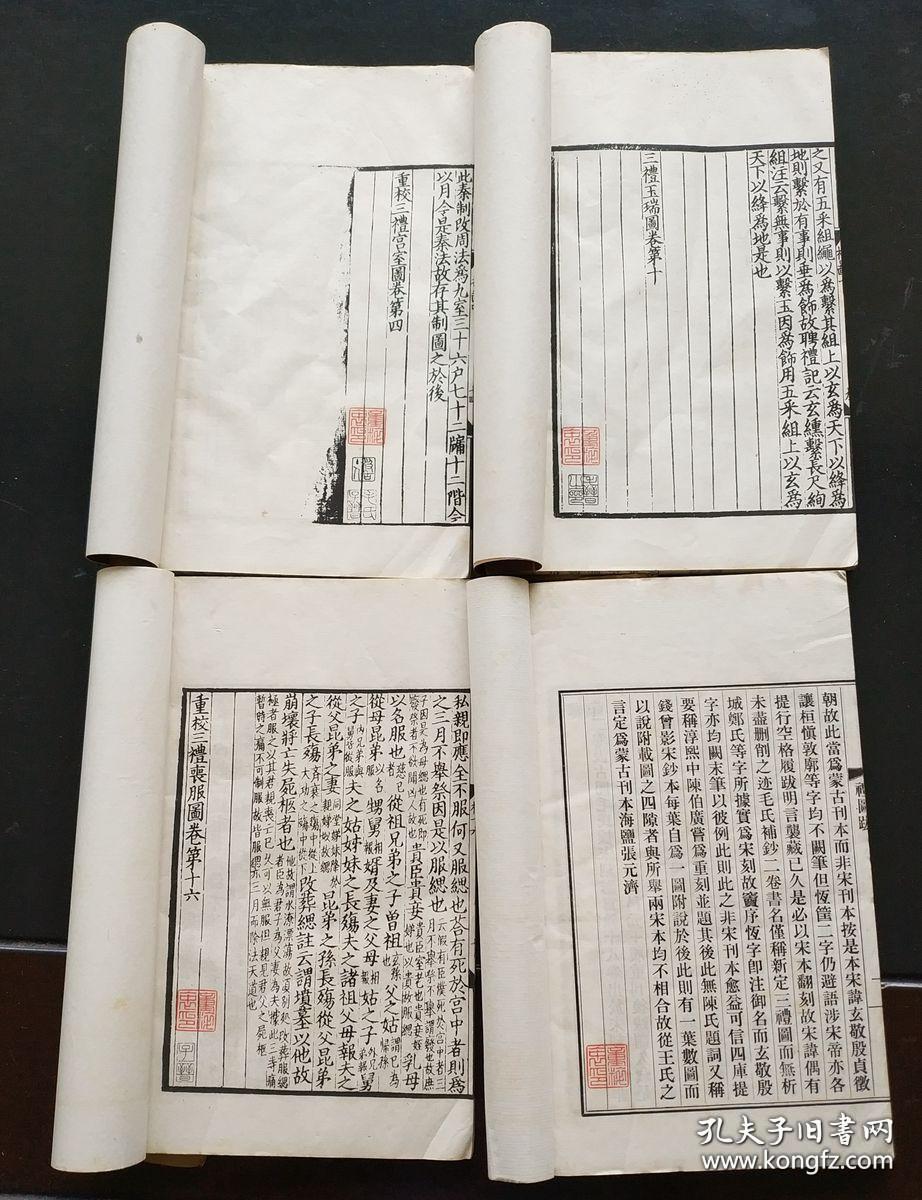 此秦制改周法爲九室三十六户七十二牖十二階今
以月令是秦法故存其制圖之於後
重校三禮宫室圖卷第四
之又有五采組繩以爲繫其組上以玄爲天下以絳爲
地則繫於有事則垂爲飾故聘禮記云玄纁繫長尺絢
組注云繫無事則以繫玉因爲飾用五采組上以玄爲
天下以絳爲地是也
三禮玉瑞圖卷第十
私親即應全不服何又服緦也荅有死於宫中者則爲
之三月不舉祭因是以服緦也
貴臣貴妾
乳母
以名服也
從祖兄弟之子曾祖
父之姑
從母昆弟
甥舅
婿
及妻之父母
姑之子
舅
之子
夫之姑姊妹之長殤夫之諸祖父母報夫之
從父昆弟之妻
昆弟之孫長殤從父昆弟
之子長殤
改葬緦註云謂墳墓以他故
崩壞將亡失死柩者也
暫時之痛不可制服故皆服緦三月而除法天道也
重校三禮喪服圖卷第十六
禮圖跋
朝故此當爲蒙古刊本而非宋刊本按是本宋諱玄敬殷貞徵
讓桓慎敦廓等字均不闕筆但恆筐二字仍避語涉宋帝亦各
提行空格履跋明言襲藏已久是必以宋本翻刻故宋諱偶有
未盡刪削之迹毛氏補鈔二卷書名僅稱新定三禮圖而無析
城鄭氏等字所據實爲宋刻故竇序恆字卽注御名而玄敬殷
字亦均闕末筆以彼例此則此之非宋刊本愈益可信四庫提
要稱淳熙中陳伯廣嘗爲重刻並題其後此無陳氏題詞又稱
錢曾影宋鈔本每葉自爲一圖附說於後此則有一葉數圖而
以說附載圖之四隙者與所舉兩宋本均不相合故從王氏之
言定爲蒙古刊本海鹽張元濟
孔夫子旧书网
www.kongfz.com